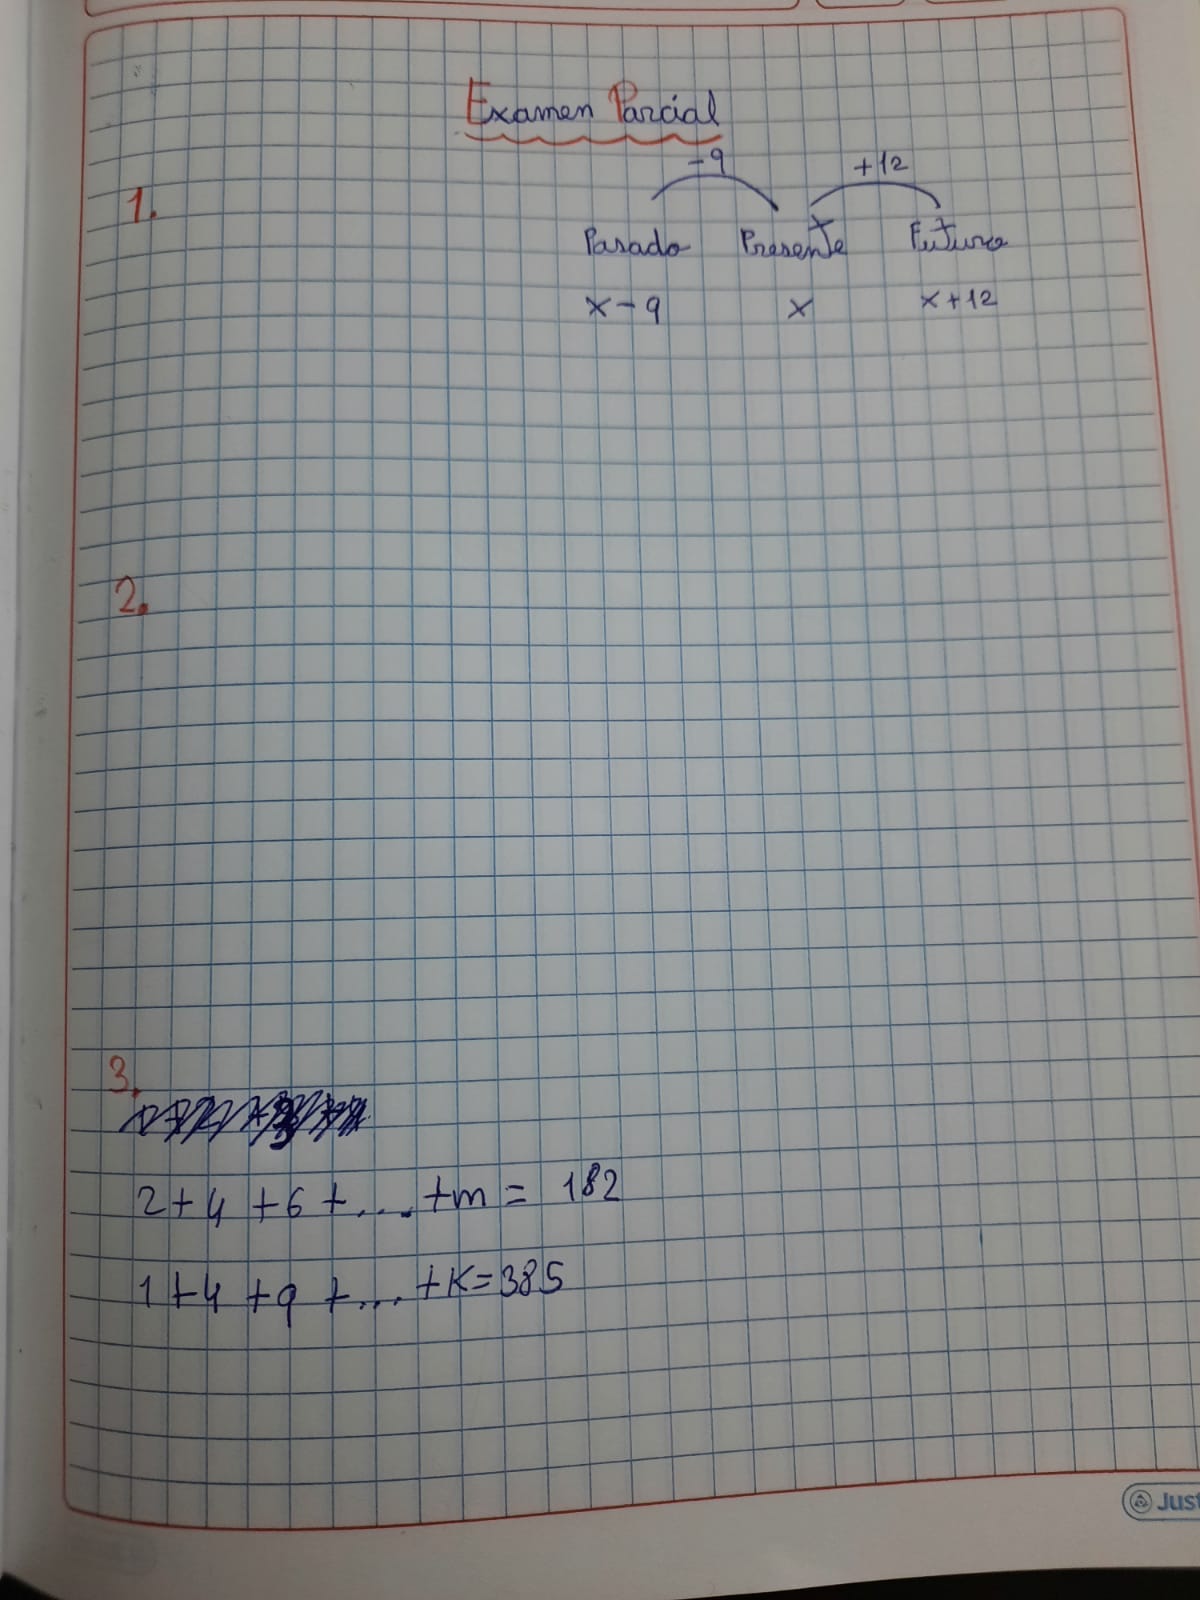 Examen Parcial
-9 +12
1.
Pasado Presente Futuro
x-9 x x+12
2.
3.
2+4+6+...+m= 182
1+4+9+...+K=385
Just